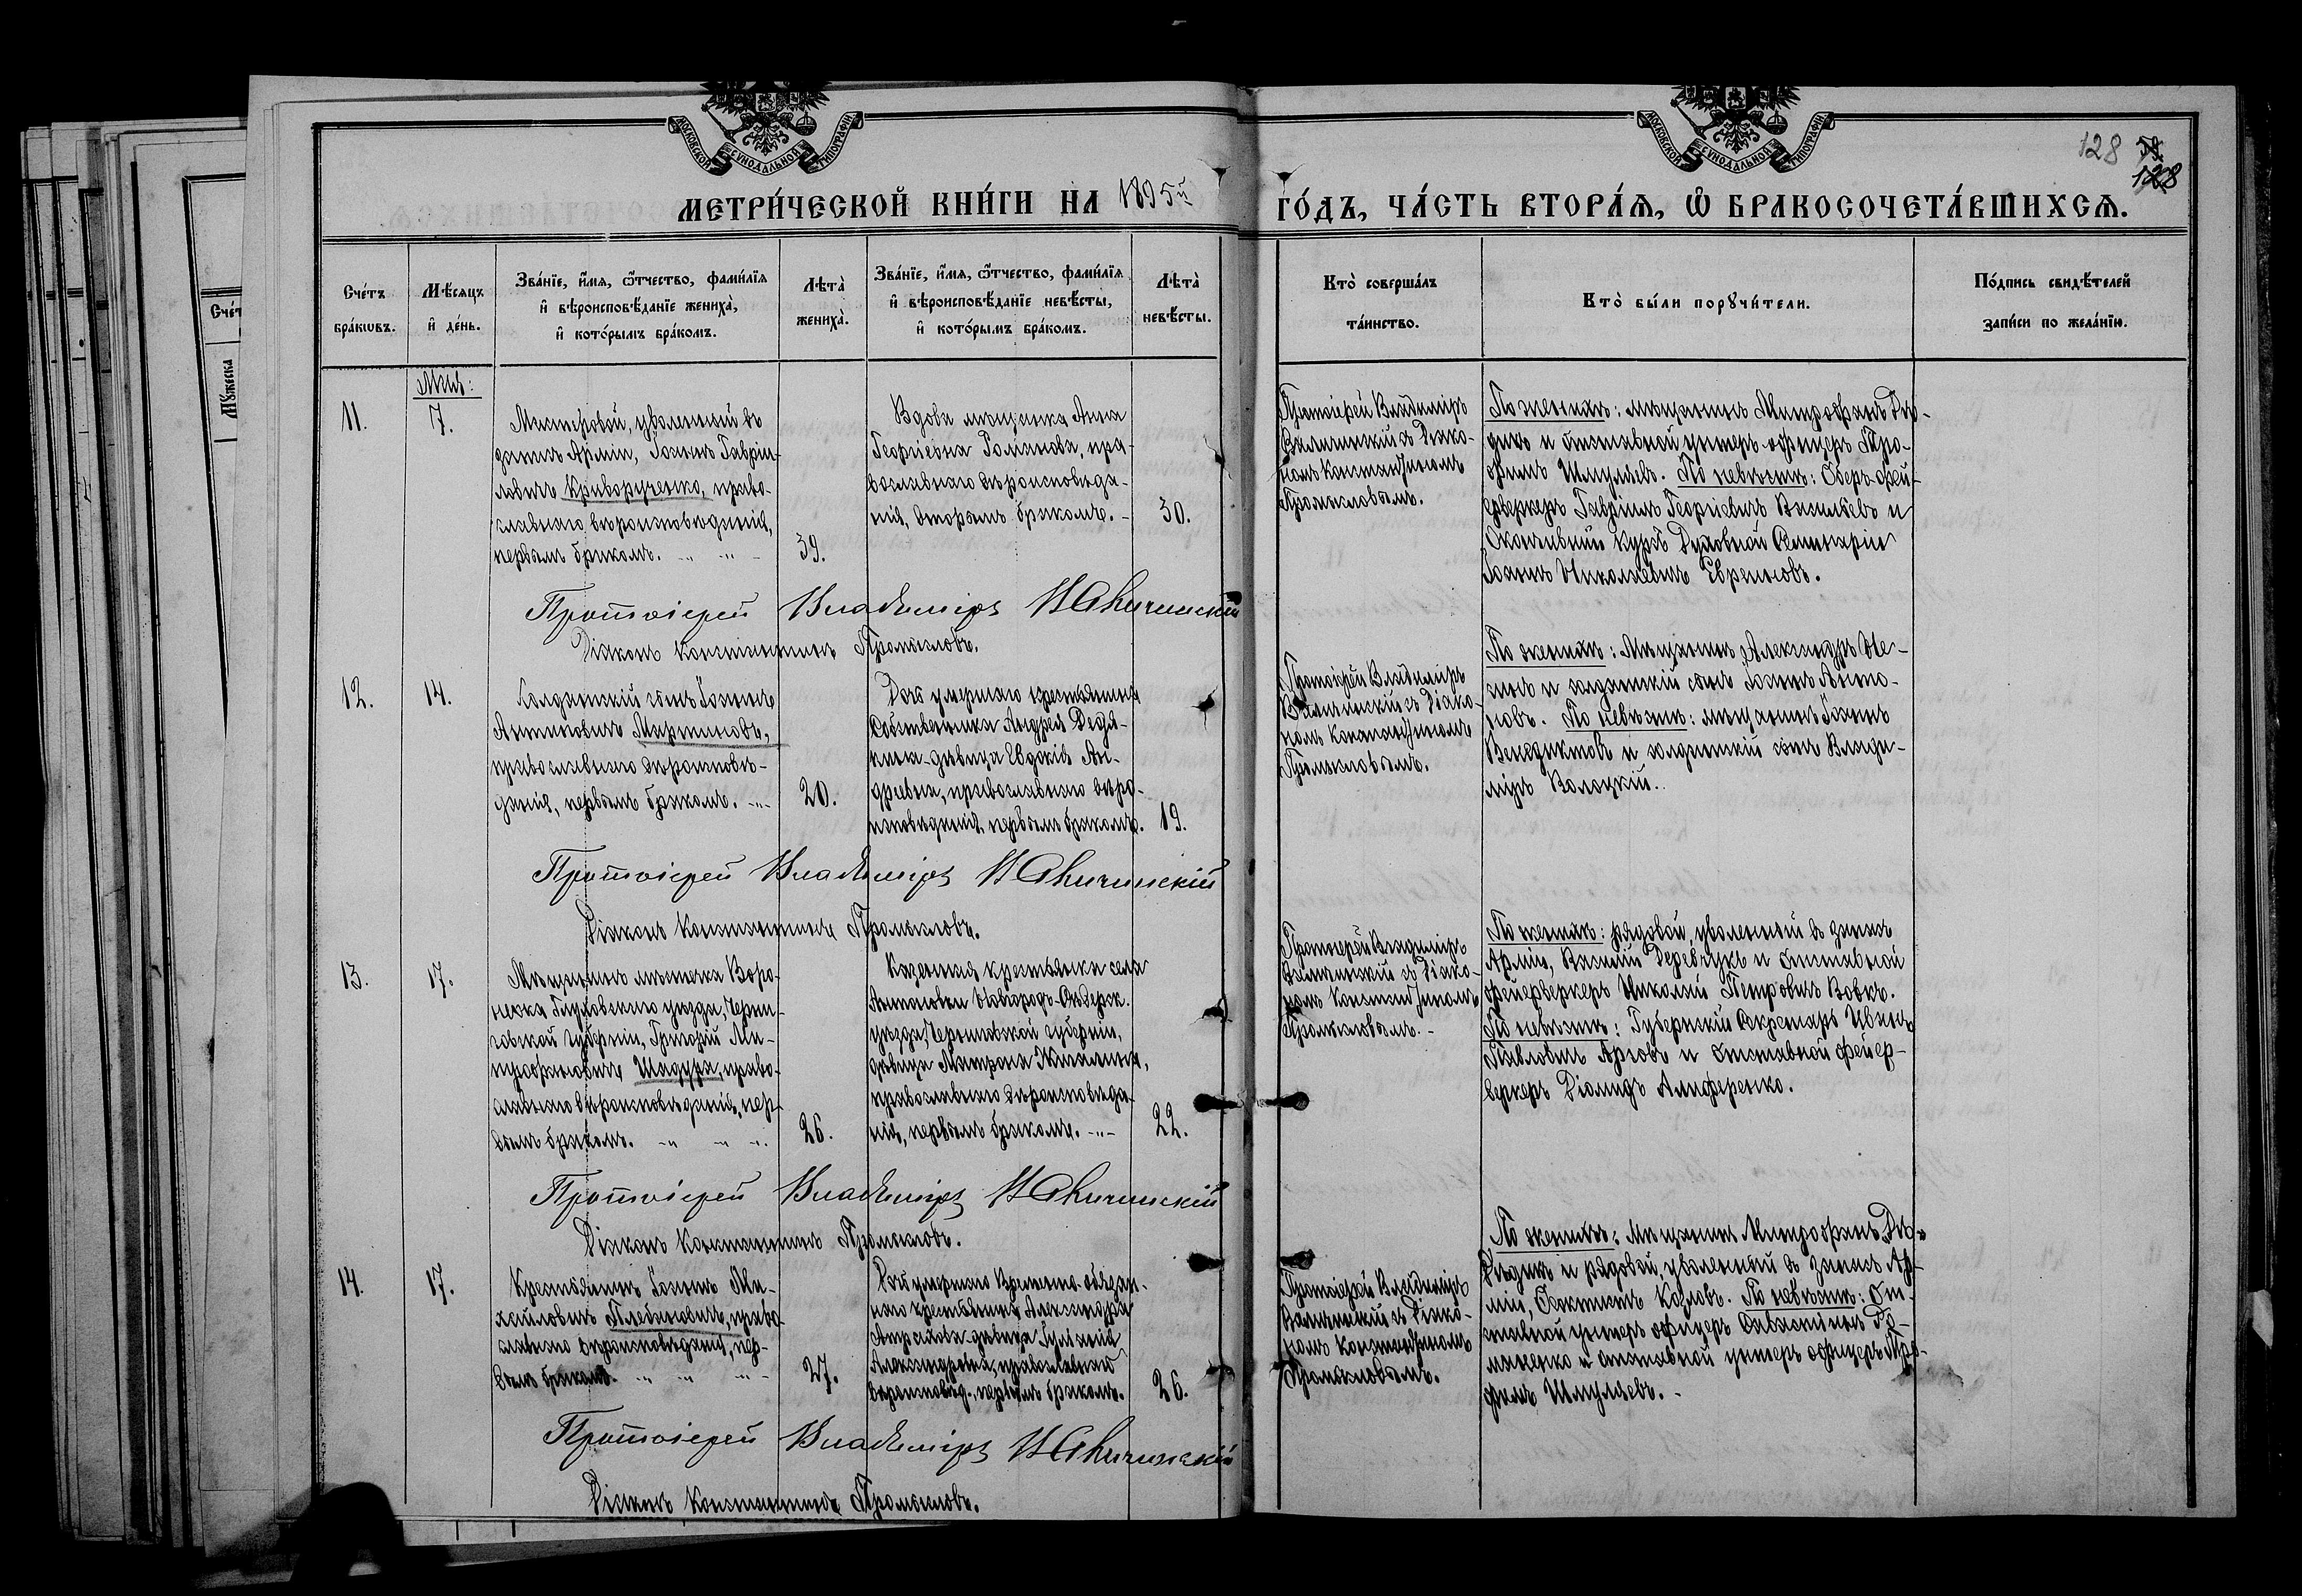 МОСКОВСКОЙ СѴНОДАЛЬНОЙ ТИПОГРАФІИ
МОСКОВСКОЙ СѴНОДАЛЬНОЙ ТИПОГРАФІИ
128
128
МЕТРИ́ЧЕСКОЙ КНИ́ГИ НА 1895й
ГО́ДЪ, ЧА́СТЬ ВТОРА́Ѧ, Ѡ҆ БРАКОСОЧЕТА́ВШИХСѦ.
Сче́тъ
бра́кѡвъ.
Мѣ́сѧцъ
и҆ де́нь.
Зва́нїе, и҆́мѧ, ѻ҆́тчество, фами́лїѧ
и҆ вѣроисповѣ́данїе жениха̀,
и҆ кото́рымъ бра́комъ.
Лѣта̀
жениха̀.
Зва́нїе, и҆́мѧ, ѻ҆́тчество, фами́лїѧ
и҆ вѣроисповѣ́данїе невѣ́сты,
и҆ кото́рымъ бра́комъ.
Лѣта̀
невѣ́сты.
Кто̀ соверша́лъ
та́инство.
Кто̀ бы́ли порꙋчи́тели.
По́дпись свидѣ́телей
за́писи по жела́нїю.
Счет
Мꙋжеска
Май:
11.
7.
Мастеровой, уволенный въ
запасъ Арміи, Іоаннъ Гаврі-
ловичъ Криворученко, право-
славнаго вѣроисповѣданія,
первымъ бракомъ.
39.
Вдова мѣщанка Анна
Георгіевна Романова, пра-
вославнаго вѣроисповѣда-
нія, вторымъ бракомъ. –
30.
Протоіерей Владиміръ
съ Діако-
номъ Константиномъ
Промысловымъ.
По женихѣ: мѣщанинъ Митрофанъ Дѣ-
дикъ и отставной унтеръ-офицеръ Тро-
фимъ Шмулевъ. По невѣстѣ: Оберъ-фей-
ерверкеръ Гавріилъ Георгіевичъ Васильевъ и
Окончившій курсъ Духовной Семинаріи
Іоаннъ Николаевичъ Евреиновъ.
Протоіерей Владиміръ
Діаконъ Константинъ Промысловъ.
12.
14.
Солдатскій сынъ Іоаннъ
Антоновичъ Мартиновъ,
православнаго вѣроисповѣ-
данія, первымъ бракомъ.
20.
Дочь умершаго крестьянина
Собственника Андрея Дедя-
кина-дѣвица Евдокія Ан-
дреевна, православнаго вѣро-
исповѣданія, первымъ бракомъ.
19.
Протоіерей Владиміръ
съ Діако-
номъ Константиномъ
Промысловымъ.
По женихѣ: Мѣщанинъ Александръ
и солдатскій сынъ Іоаннъ
По невѣстѣ: мѣщанинъ Іоаннъ
Венедиктовъ и солдатскій сынъ Влади-
міръ Волоцкій.
Протоіерей Владиміръ
Діаконъ Константинъ Промысловъ.
13.
17.
Мѣщанинъ мѣстечка Воро-
нежа Глуховскаго уѣзда, Черни-
говской губерніи, Григорій Ми-
трофановичъ Шадура, право-
славнаго вѣроисповѣданія, пер-
вымъ бракомъ.
26.
Казенная крестьянка села
Антоновки Новгородъ-Сѣверск.
уѣзда, Черниговской губерніи,
дѣвица Матрона
православнаго вѣроисповѣда-
нія, первымъ бракомъ.
22.
Протоіерей Владиміръ
съ Діако-
номъ Константиномъ
Промысловымъ. –
По женихѣ: рядовой, уволенный въ запасъ
Арміи, Василій Деревчукъ и отставной
фейерверкеръ Николай Петровичъ Вовкъ.
По невѣстѣ: Губернскій Секретарь Иванъ
Павловичъ Арговъ и отставной фейер-
веркеръ Діомидъ Алиференко.
Протоіерей Владиміръ
Діаконъ Константинъ Промысловъ.
14.
17.
Крестьянинъ Іоаннъ Ми-
хайловичъ Плебановичъ, право-
славнаго вѣроисповѣданія, пер-
вымъ бракомъ.
27.
Дочь умершаго Временно-обязан-
наго крестьянина Александра
дѣвица
Александровна, православнаго
вѣроисповѣд., первымъ бракомъ.
26.
Протоіерей Владиміръ
съ Діако-
номъ Константиномъ
Промысловымъ.
По женихѣ: Мѣщанинъ Митрофанъ
Дѣдикъ и рядовой, уволенный въ запасъ Ар-
міи, Козловъ. По невѣстѣ: От-
ставной унтеръ офицеръ Севастіанъ Ро-
маненко и отставной унтеръ офицеръ Тро-
фимъ Шмулевъ. –
Протоіерей Владиміръ
Діаконъ Константинъ Промысловъ.